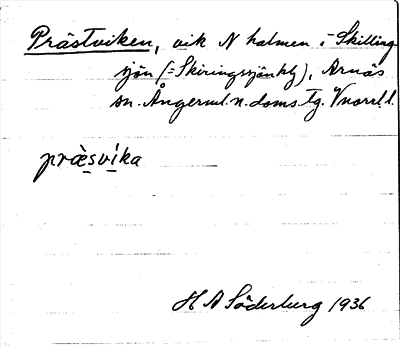 Prästviken, vik N halmen i Skilling-
sjön (= Skiringssjön kbg), Arnäs
sn. Ångerml. n. doms. tg. Vnorrl. l.
præ̀sví̱ka
H A Söderberg 1936